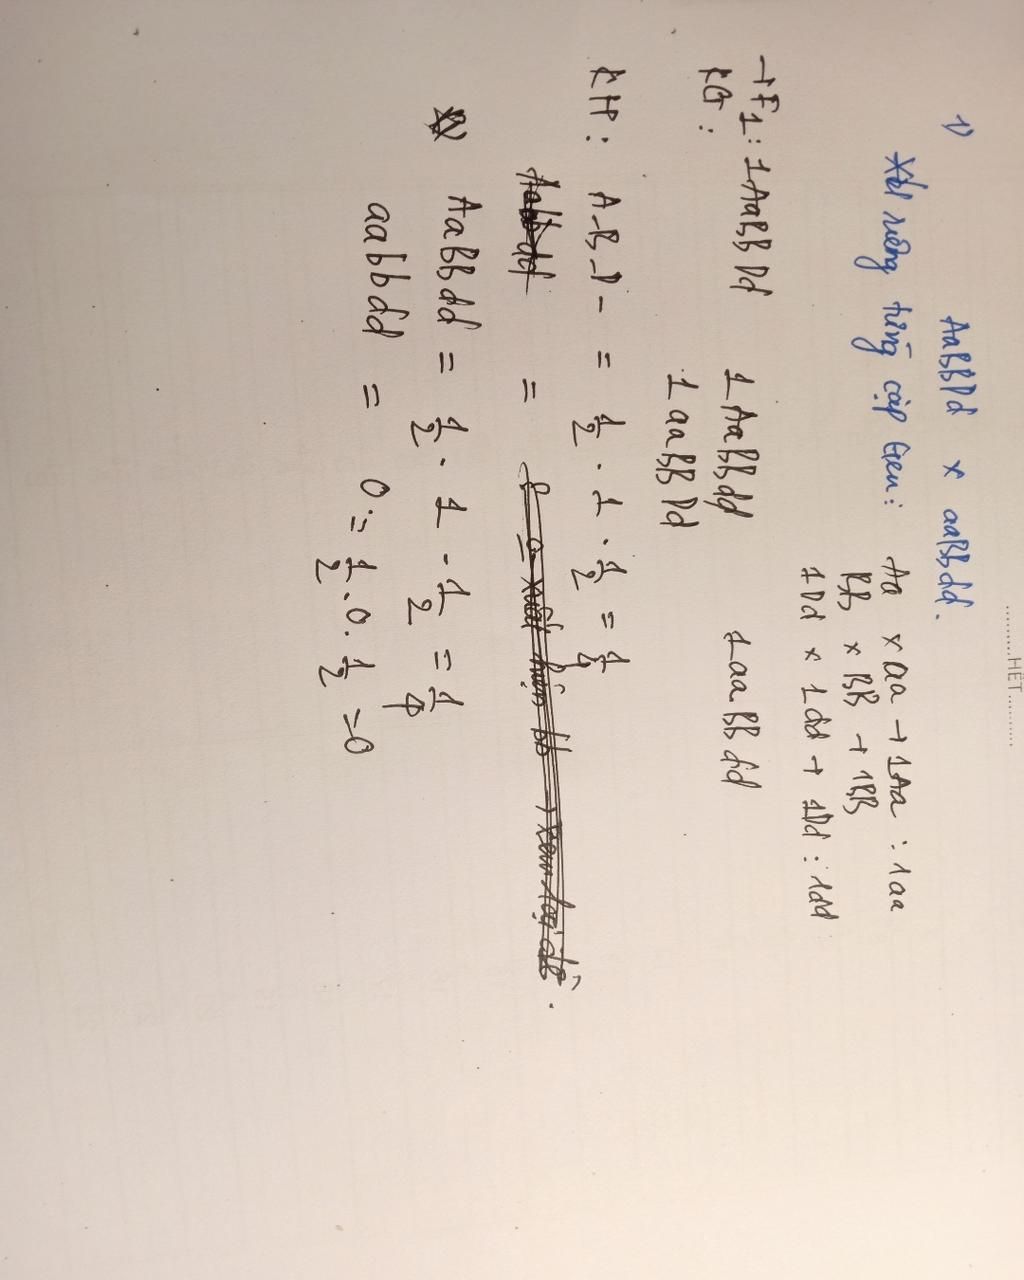 ..........HẾT..........
1) AaBBDd x aaBBdd.
Xét riêng từng cặp Gen: Aa x aa → 1Aa : 1aa
BB x BB → 1BB
1Dd x 1dd → 1Dd : 1dd
→ F1: 1AaBBDd 1AaBBdd 1aaBBdd
KG: 1aaBBDd
KH: A-B-D- = 1/2 . 1 . 1/2 = 1/4
=
AaBBdd = 1/2 . 1 . 1/2 = 1/4
aabbdd = 0 = 1/2 . 0 . 1/2 = 0